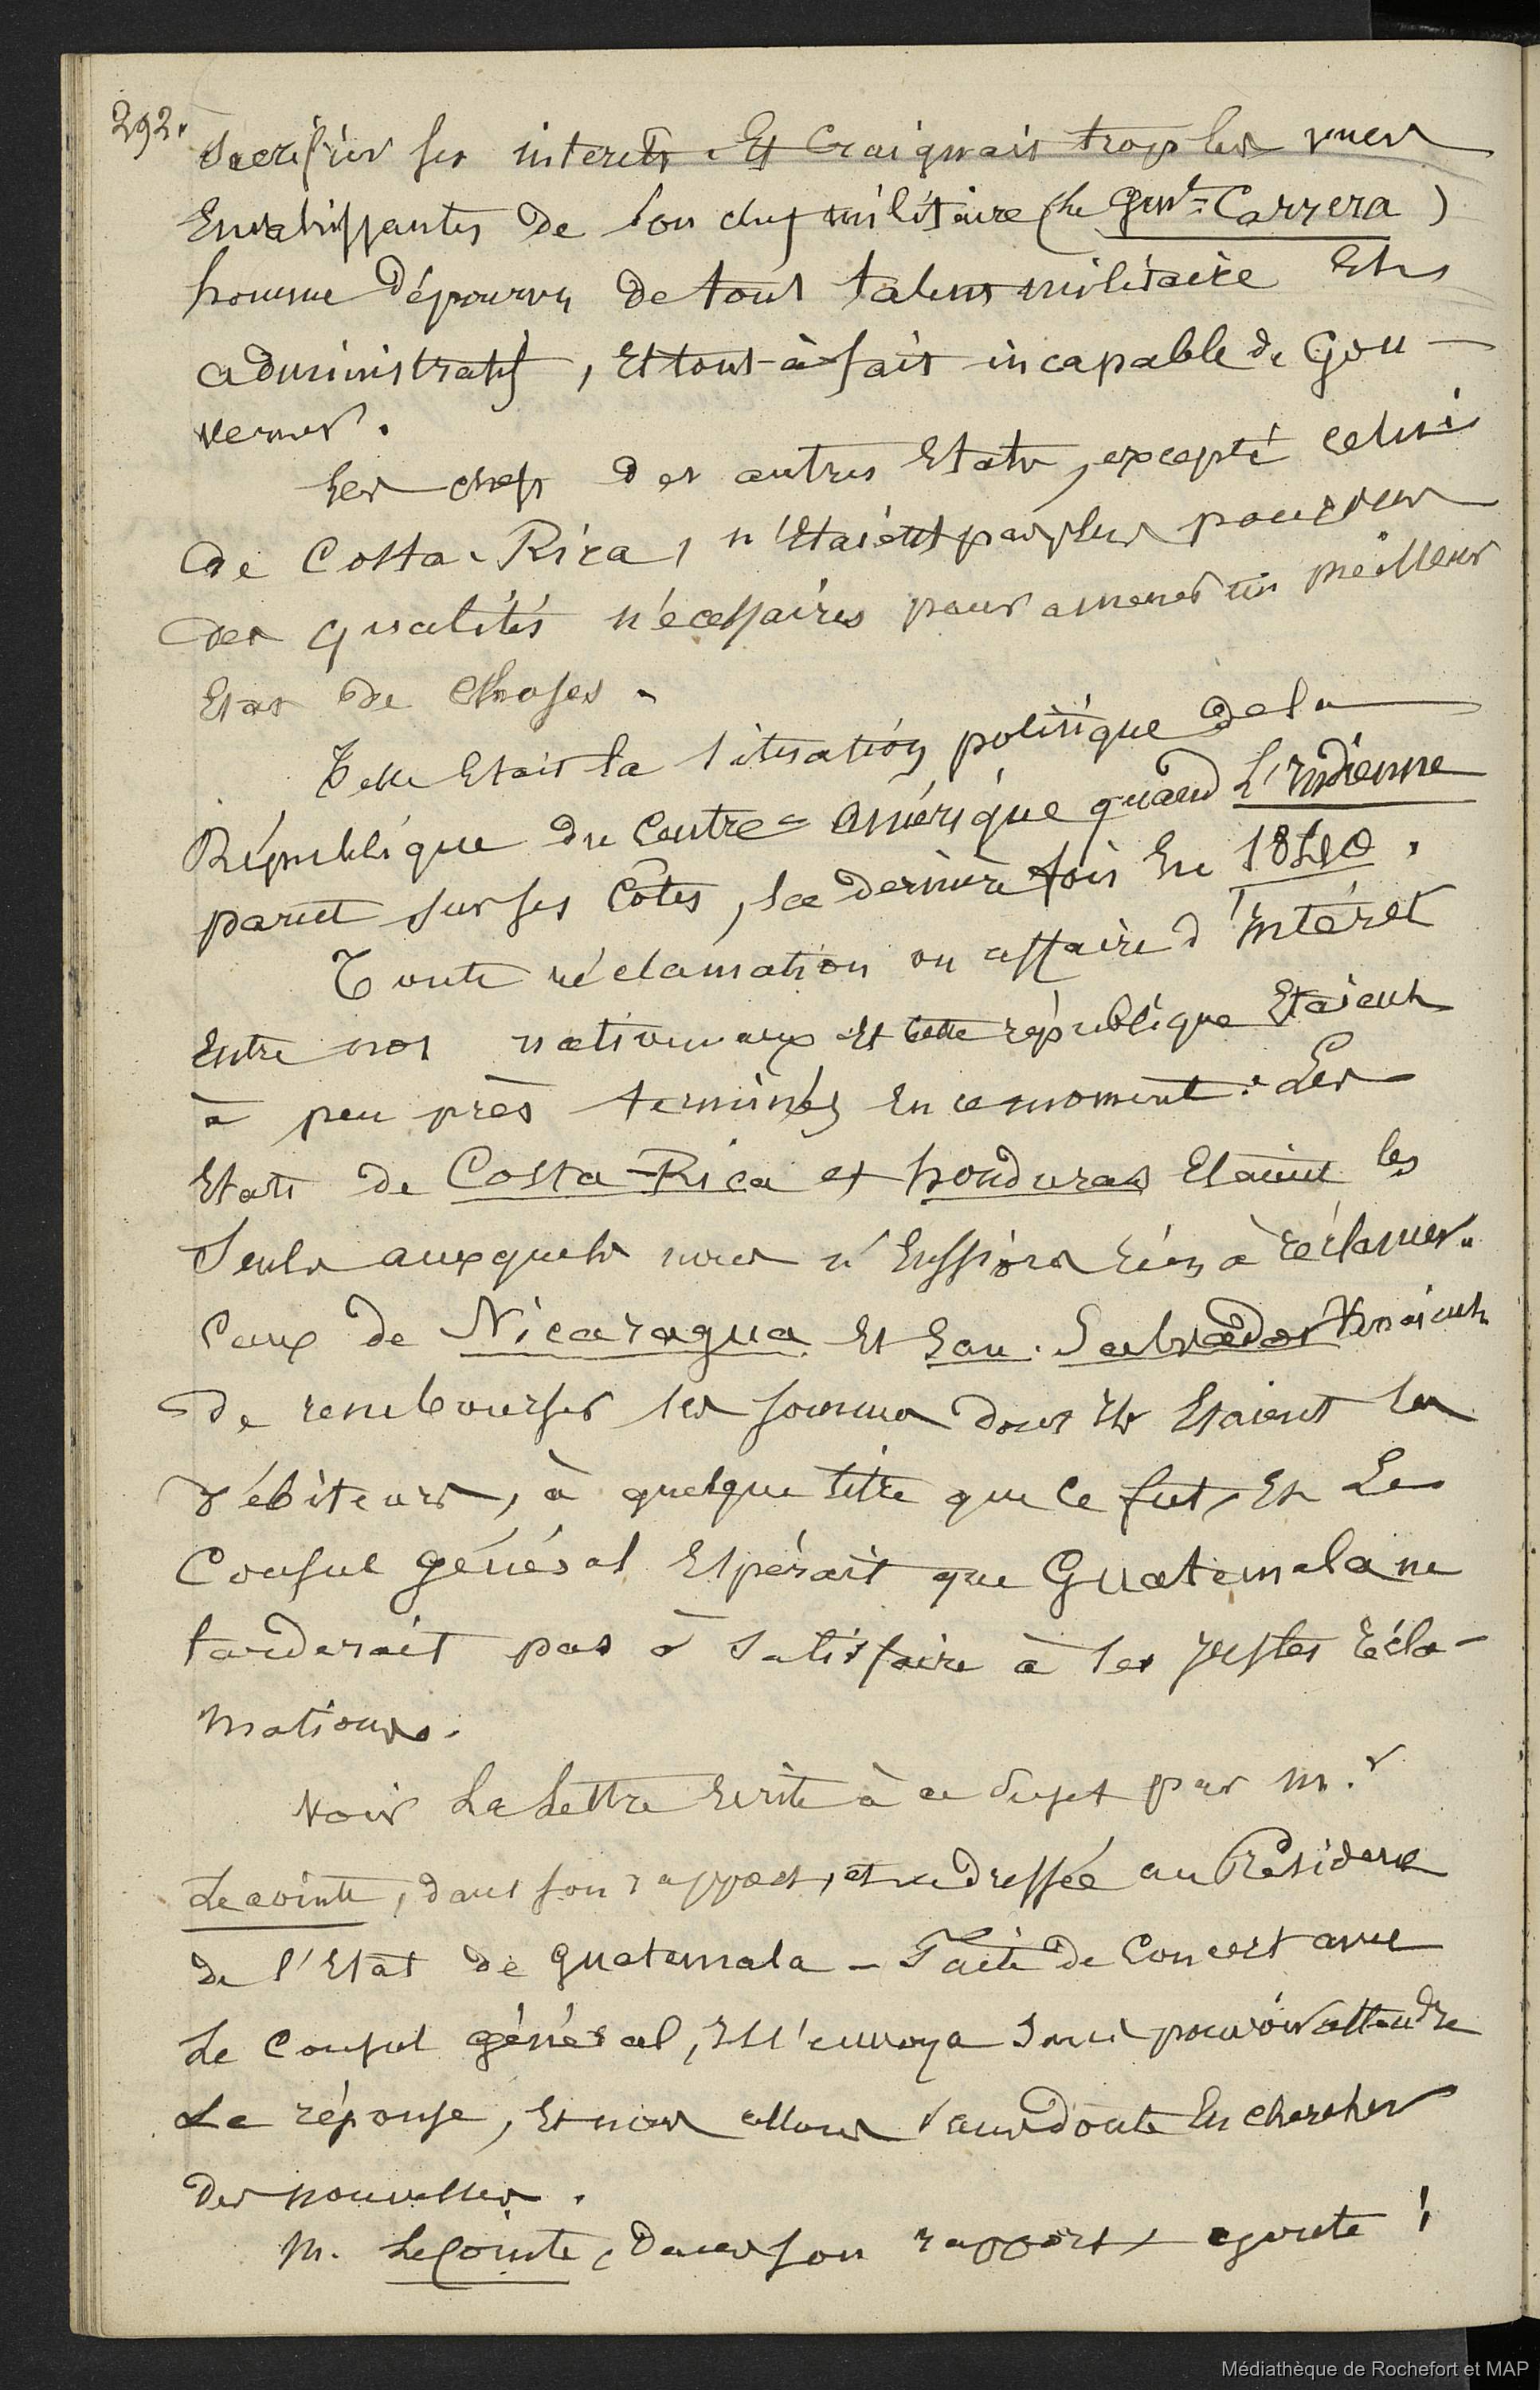 292.
sacrifier ses interets. Et Craignait trop les vues
Envahissantes de son chef militaire (le Gen.l Carrera)
homme dépourvu de tout talent militaire Et
administratif, Et tout-à-fait incapable de Gou-
verner.
Les chefs des autres Etats, excepté celui
de Costa-Rica, n'Etaient pas plus pourvus
des qualités nécessaires pour amener un meilleur
Etat de choses.
Telle Etait la situation politique de la
République du Centre-Amérique quand L'Indienne
parut sur ses Côtes, la dernière fois En 1840.
Toute réclamation ou affaire d'Intérêt
Entre nos nationaux Et cette république Etaient
à peu près terminées En ce moment. Les
Etats de Costa-Rica et honduras Etaient les
Seuls auxquels nous n'Eussions rien à réclamer.
Ceux de Nicaragua Et San-Salvador Venaient
de rembourser les sommes dont Ils Etaient les
débiteurs, à quelque titre que ce fut, Et Le
Consul général Espérait que Guatemala ne
tarderait pas à satisfaire à ses justes récla-
mations.
Voir La Lettre Ecrite à ce Sujet par M.r
Lecointe, dans son rapport, et adressée au Président
de l'Etat de Guatemala - Faite de Concert avec
Le Consul général, Il l'envoya sans pouvoir attendre
La réponse, Et nous allons sans doute En chercher
des nouvelles.
M. LeCointe, dans son rapport, ajoute :
Médiathèque de Rochefort et MAP